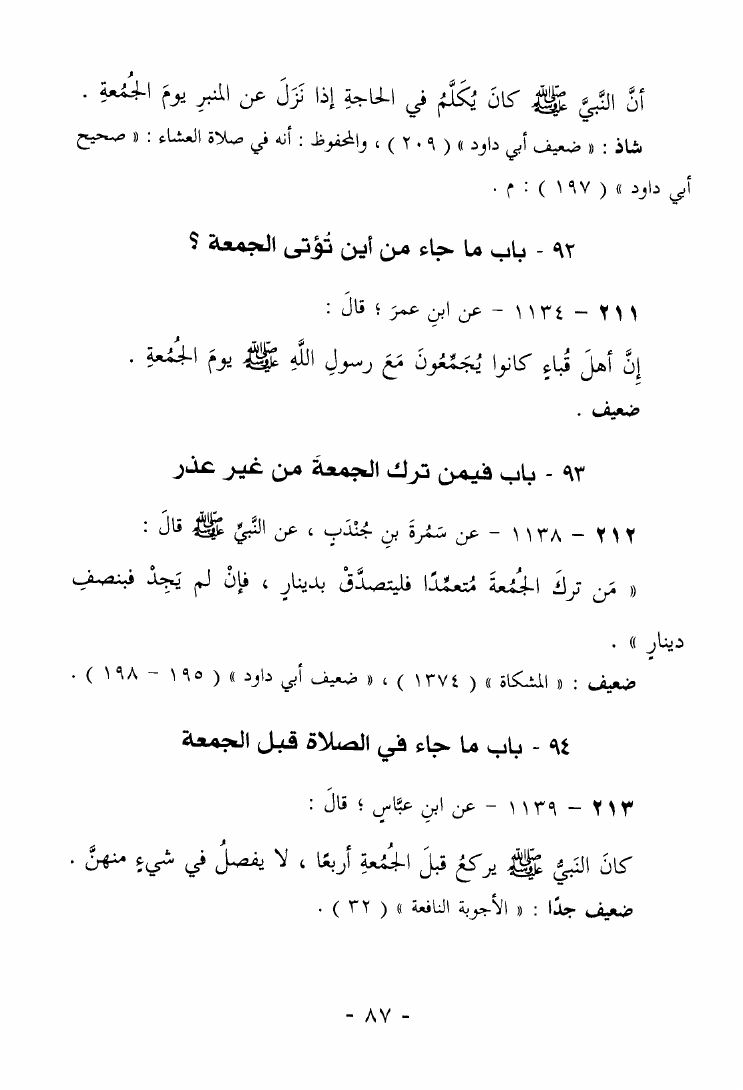 أنَّ النَّبيَّ ﷺ كانَ يُكَلَّمُ في الحاجةِ إذا نَزَلَ عن المنبرِ يومَ الجُمُعةِ .
شاذ : « ضعيف أبي داود » ( ٢٠٩ ) ، والمحفوظ : أنه في صلاة العشاء : « صحيح
أبي داود » ( ١٩٧ ) : م .
٩٢ - باب ما جاء من أين تُؤتى الجمعة ؟
٢١١ – ١١٣٤ – عن ابنِ عمرَ ؛ قالَ :
إنَّ أهلَ قُباءٍ كانوا يُجَمِّعُونَ مَعَ رسولِ اللَّهِ ﷺ يومَ الجُمُعةِ .
ضعيف .
٩٣ - باب فيمن ترك الجمعةَ من غير عذر
٢١٢ – ١١٣٨ – عن سَمُرةَ بنِ جُنْدَبٍ ، عن النَّبيِّ ﷺ قالَ :
« مَن تركَ الجُمُعةَ مُتعمِّدًا فليتصدَّقْ بدينارٍ ، فإنْ لم يَجِدْ فبنصفِ
دينارٍ » .
ضعيف : « المشكاة » ( ١٣٧٤ ) ، « ضعيف أبي داود » ( ١٩٥ – ١٩٨ ) .
٩٤ - باب ما جاء في الصلاة قبل الجمعة
٢١٣ – ١١٣٩ – عن ابنِ عبَّاسٍ ؛ قالَ :
كانَ النَبيُّ ﷺ يركعُ قبلَ الجُمُعةِ أربعًا ، لا يفصلُ في شيءٍ منهنَّ .
ضعيف جدًا : « الأجوبة النافعة » ( ٣٢ ) .
- ٨٧ -